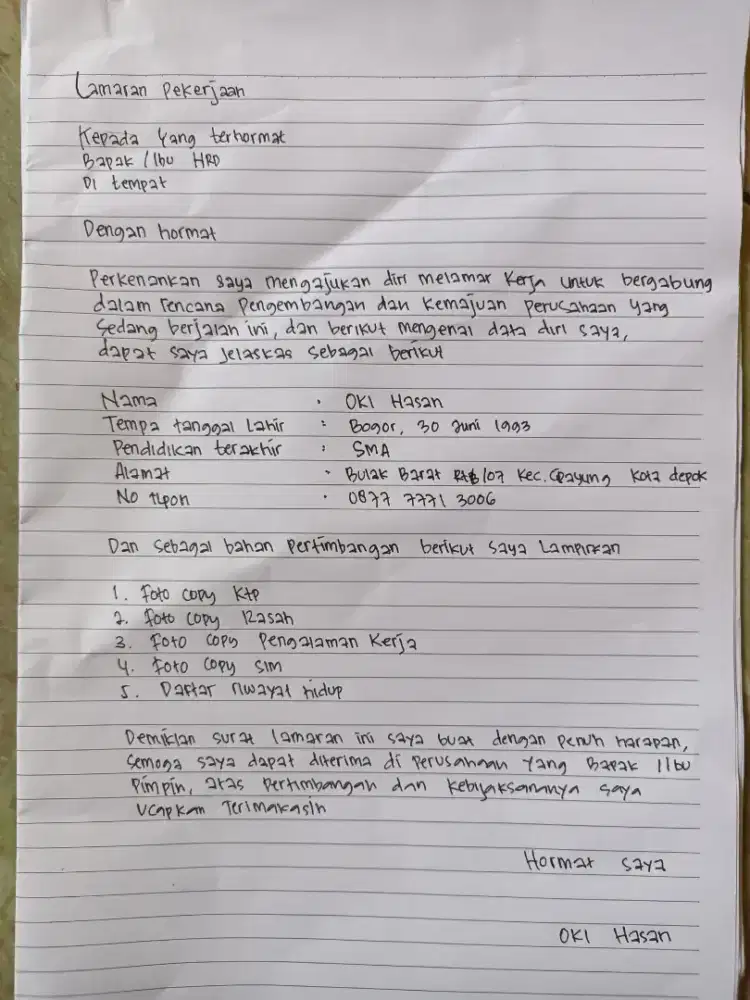 Lamaran Pekerjaan
Kepada Yang terhormat
Bapak / Ibu HRD
Di tempat
Dengan hormat
Perkenankan saya mengajukan diri melamar Kerja untuk bergabung
dalam rencana Pengembangan dan Kemajuan perusahaan Yang
Sedang berjalan ini, dan berikut mengenai data diri saya,
dapat saya Jelaskas Sebagai berikut
Nama : OKI Hasan
Tempa tanggal Lahir : Bogor, 30 Juni 1993
Pendidikan terakhir : SMA
Alamat : Bulak Barat /07 Kec. Cipayung Kota depok
No tlpon : 0877 7771 3006
Dan Sebagai bahan Pertimbangan berikut saya Lampirkan
1. foto copy Ktp
2. foto copy IZasah
3. foto copy Pengalaman Kerja
4. foto copy SIM
5. Daftar riwayat hidup
Demikian surat lamaran ini saya buat dengan penuh harapan,
Semoga saya dapat diterima di Perusahaan Yang Bapak / Ibu
Pimpin, atas Pertimbangan dan Kebijaksanannya saya
Ucapkan Terimakasih
Hormat saya
OKI Hasan